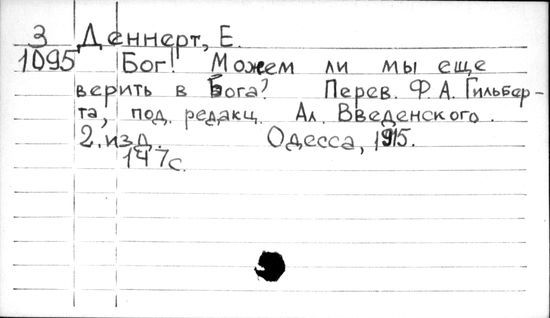 З Деннерт, Е.
1095 Бог! Можем ли мы еще
верить в Бога? Перев. Ф. А. Гильбер-
та, под. редакц. Ал. Введенского.
2. изд. Одесса, 1915.
147 с.